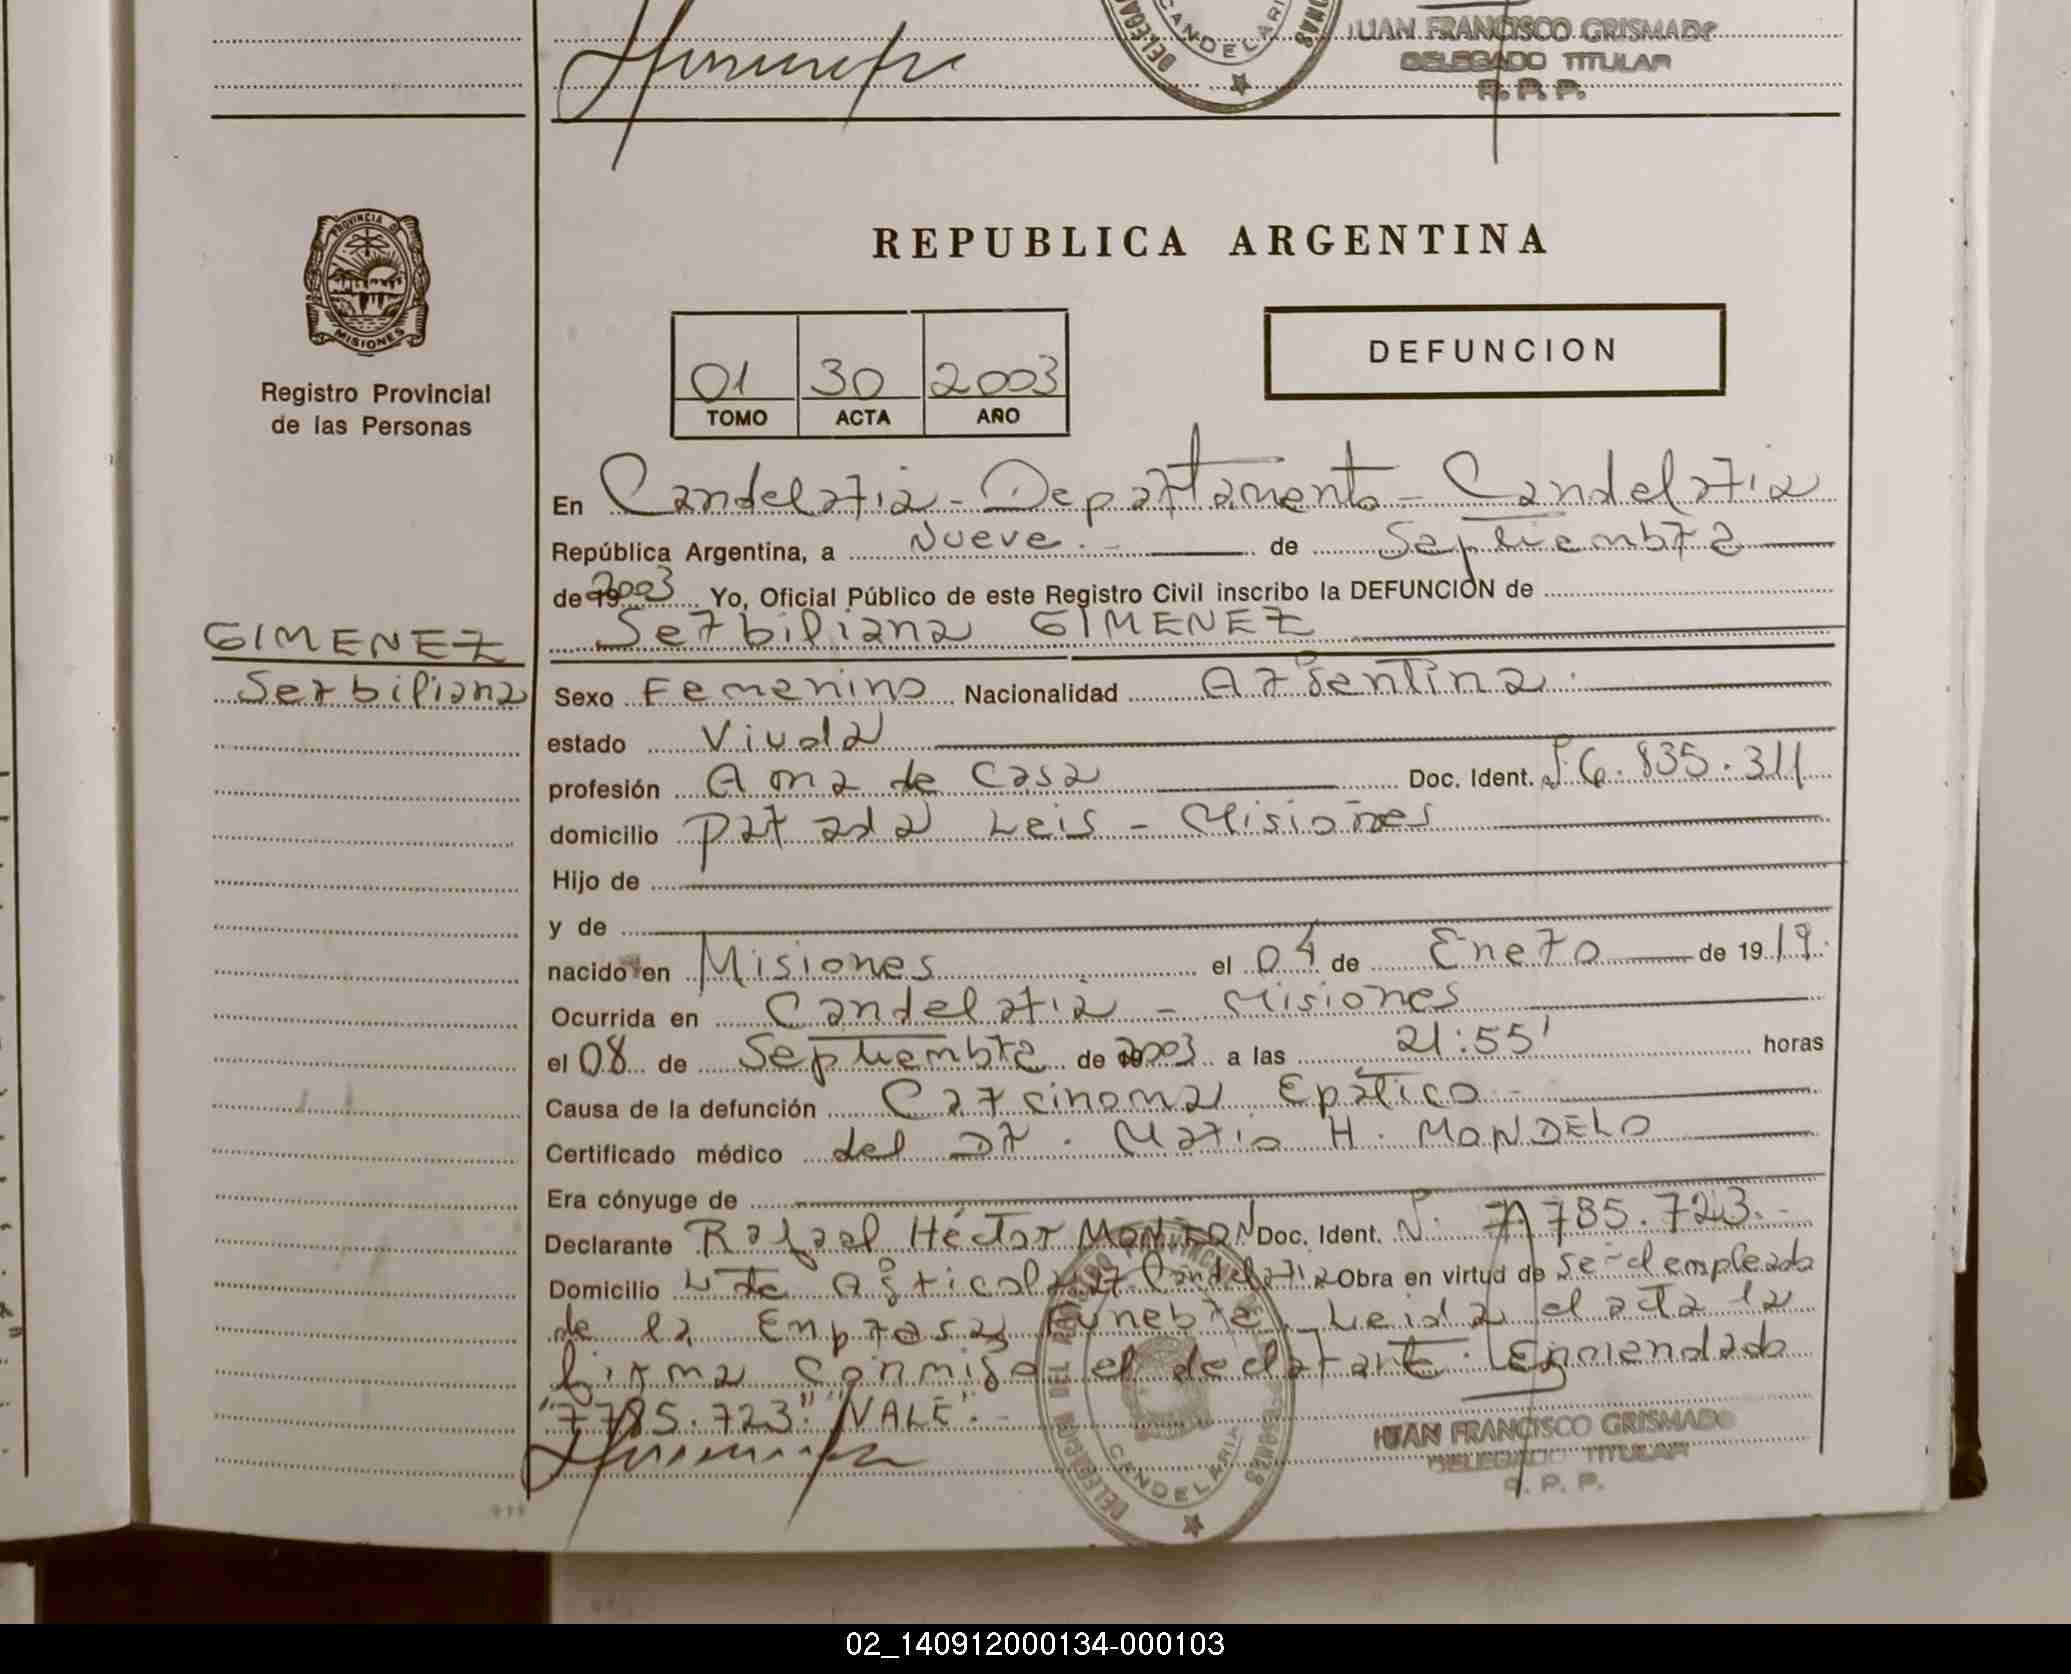 DELEGA
CANDELARI
JUAN FRANCISCO GRISMADO
DELEGADO TITULAR
R. P. P.
PROVINCIA DE
MISIONES
Registro Provincial
de las Personas
REPUBLICA ARGENTINA
01 30 2003
TOMO ACTA AÑO
DEFUNCION
En Candelaria - Departamento - Candelaria
República Argentina, a Nueve.- de Septiembre
de 2003 Yo, Oficial Público de este Registro Civil inscribo la DEFUNCION de
GIMENEZ
Serbiliana
Serbiliana GIMENEZ
Sexo Femenino Nacionalidad Argentina.
estado Viuda
profesión Ama de Casa Doc. Ident. Nº 6.835.311
domicilio Parada Leis - Misiones
Hijo de
y de
nacido en Misiones el 04 de Enero de 1919.
Ocurrida en Candelaria - Misiones
el 08 de Septiembre de 2003 a las 21:55' horas
Causa de la defunción Carcinoma Epático -
Certificado médico del Dr. Mario H. MONDELO
Era cónyuge de
Declarante Rafael Héctor MONZON Doc. Ident. Nº 7.785.723.-
Domicilio Lte Agrícola Candelaria Obra en virtud de ser el empleado
de la Empresa Funebre. Leida el acta la
firma conmigo el declarante. Enmendado
"7785.723". "VALE". -
DELEGACION DEL REGISTRO PROVINCIAL DE LAS PERSONAS
CANDELARIA
JUAN FRANCISCO GRISMADO
DELEGADO TITULAR
R. P. P.
02_140912000134-000103